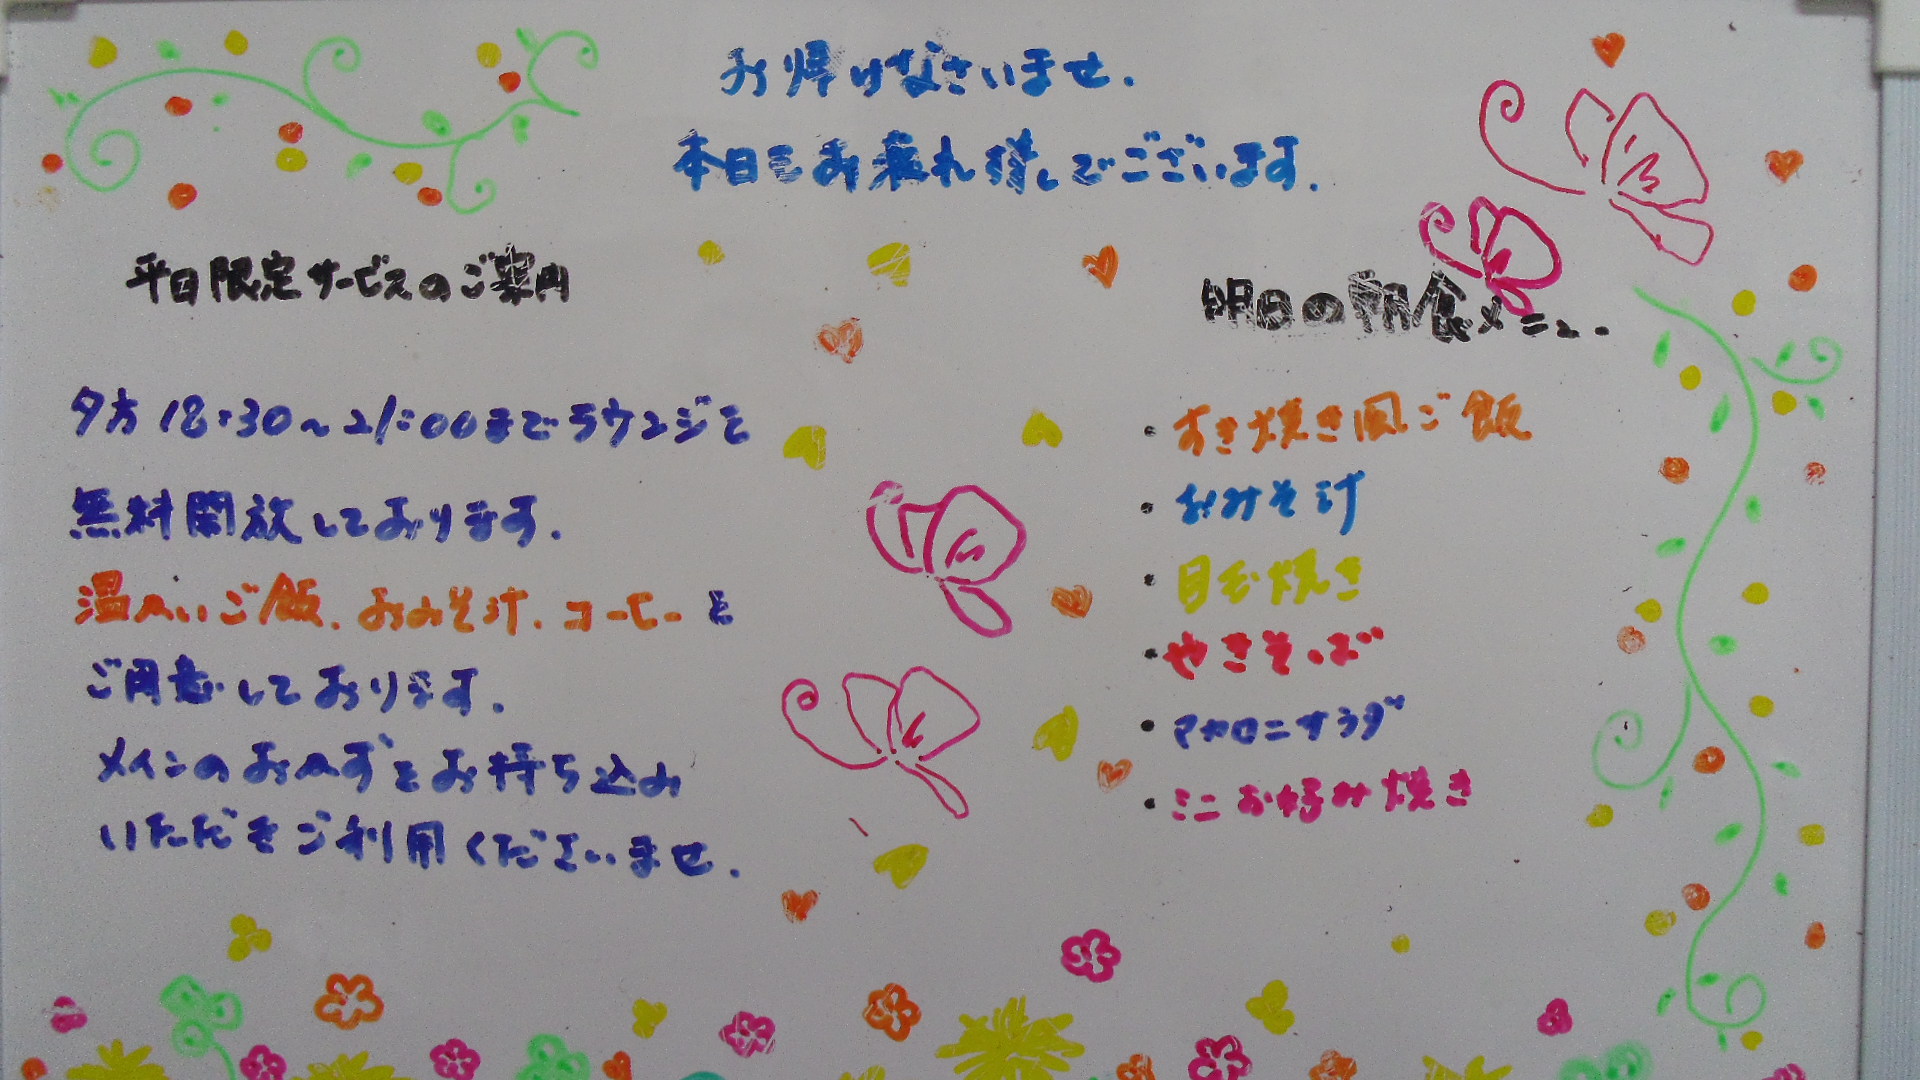 お帰りなさいませ.
本日もお疲れ様でございます.
平日限定サービスのご案内
夕方18:30〜21:00までラウンジを
無料開放しております.
温かいご飯、おみそ汁、コーヒーを
ご用意しております.
メインのおかずをお持ち込み
いただきご利用くださいませ.
明日の朝食メニュー
・すき焼き風ご飯
・おみそ汁
・目玉焼き
・やきそば
・マカロニサラダ
・ミニお好み焼き